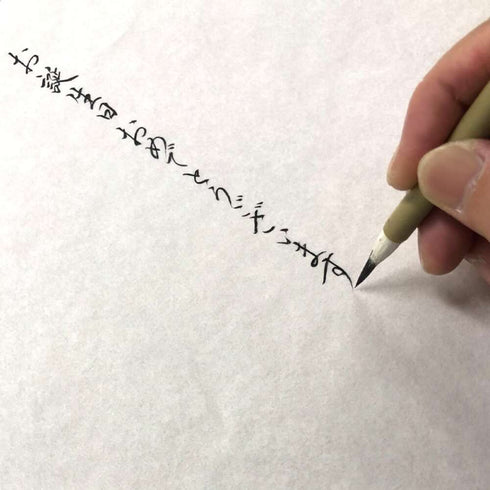 お誕生日おめでとうございます